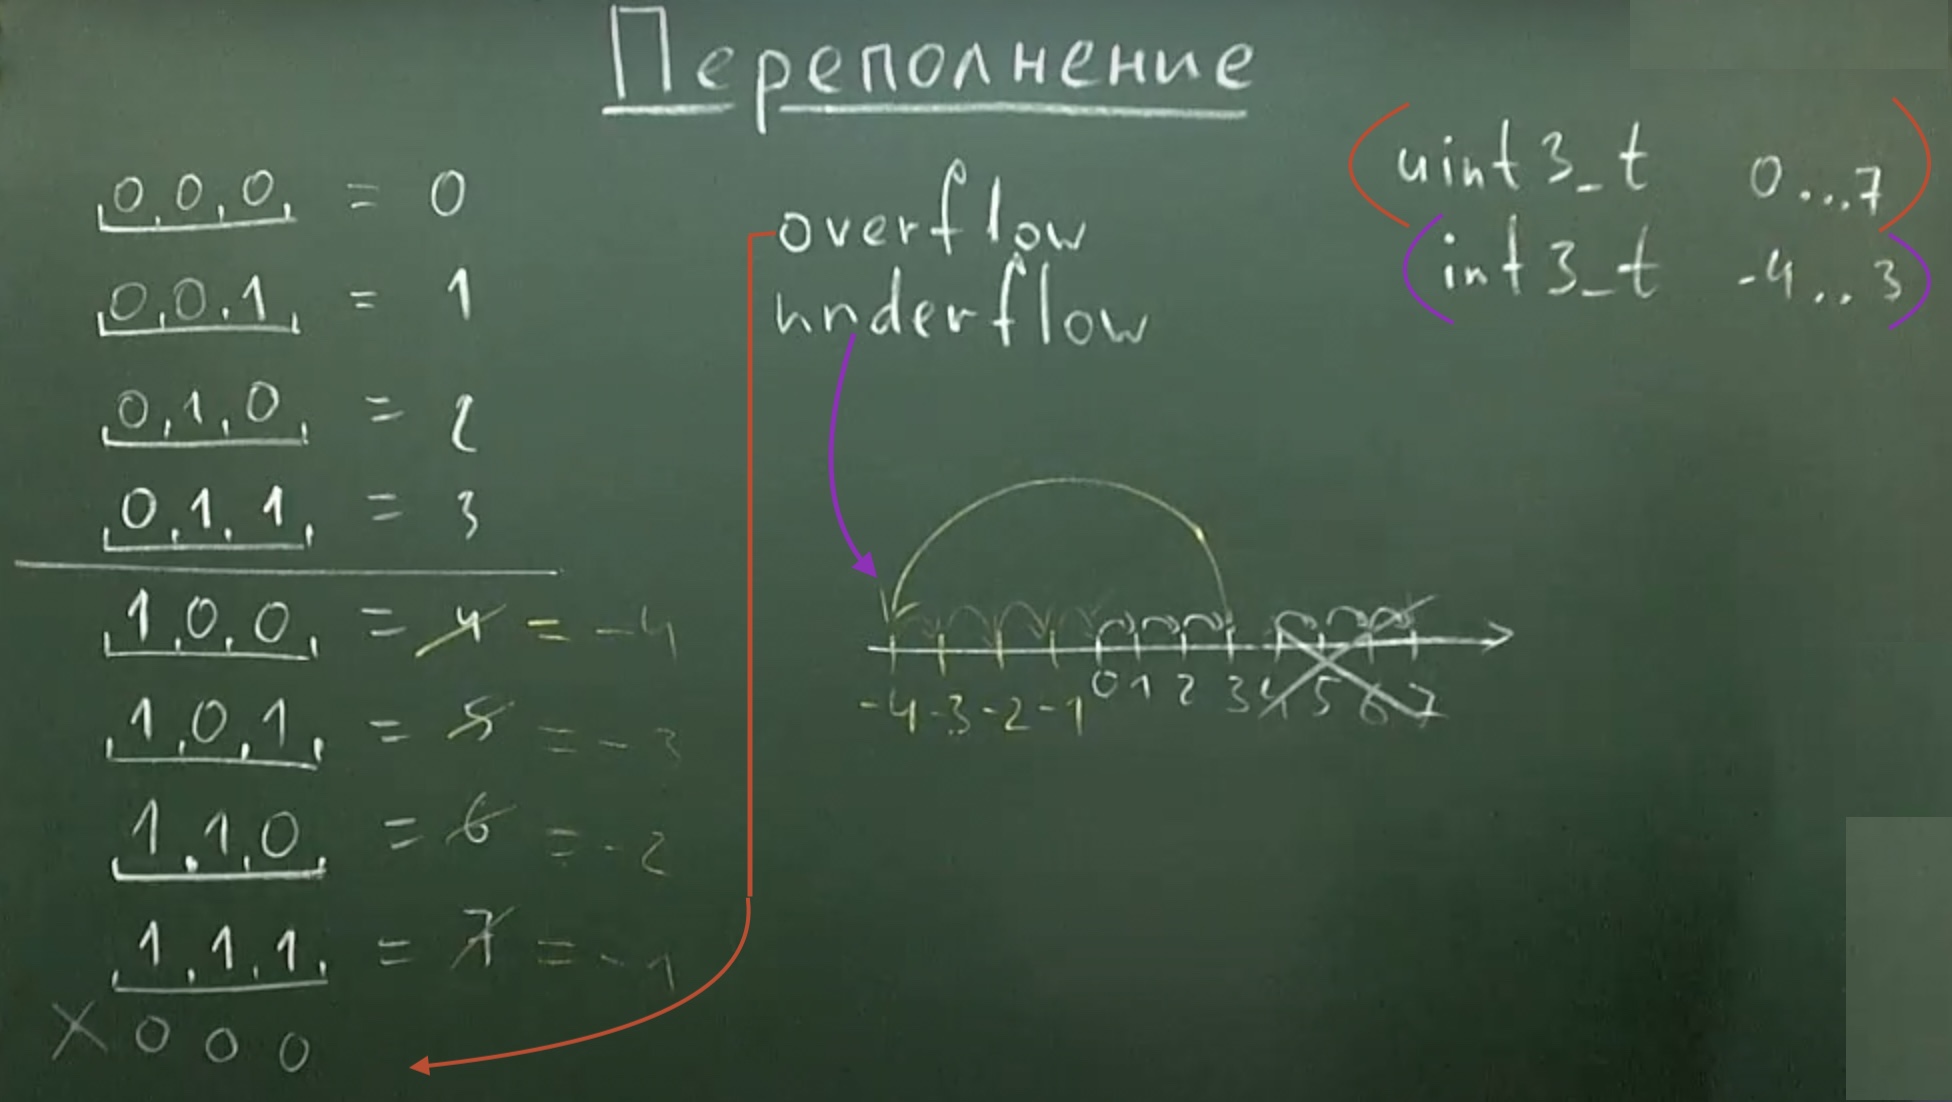 Переполнение
0 0 0 = 0
0 0 1 = 1
0 1 0 = 2
0 1 1 = 3
1 0 0 = 4 = -4
1 0 1 = 5 = -3
1 1 0 = 6 = -2
1 1 1 = 7 = -1
X 0 0 0
overflow
underflow
uint3_t 0...7
int3_t -4..3
-4 -3 -2 -1 0 1 2 3 4 5 6 7